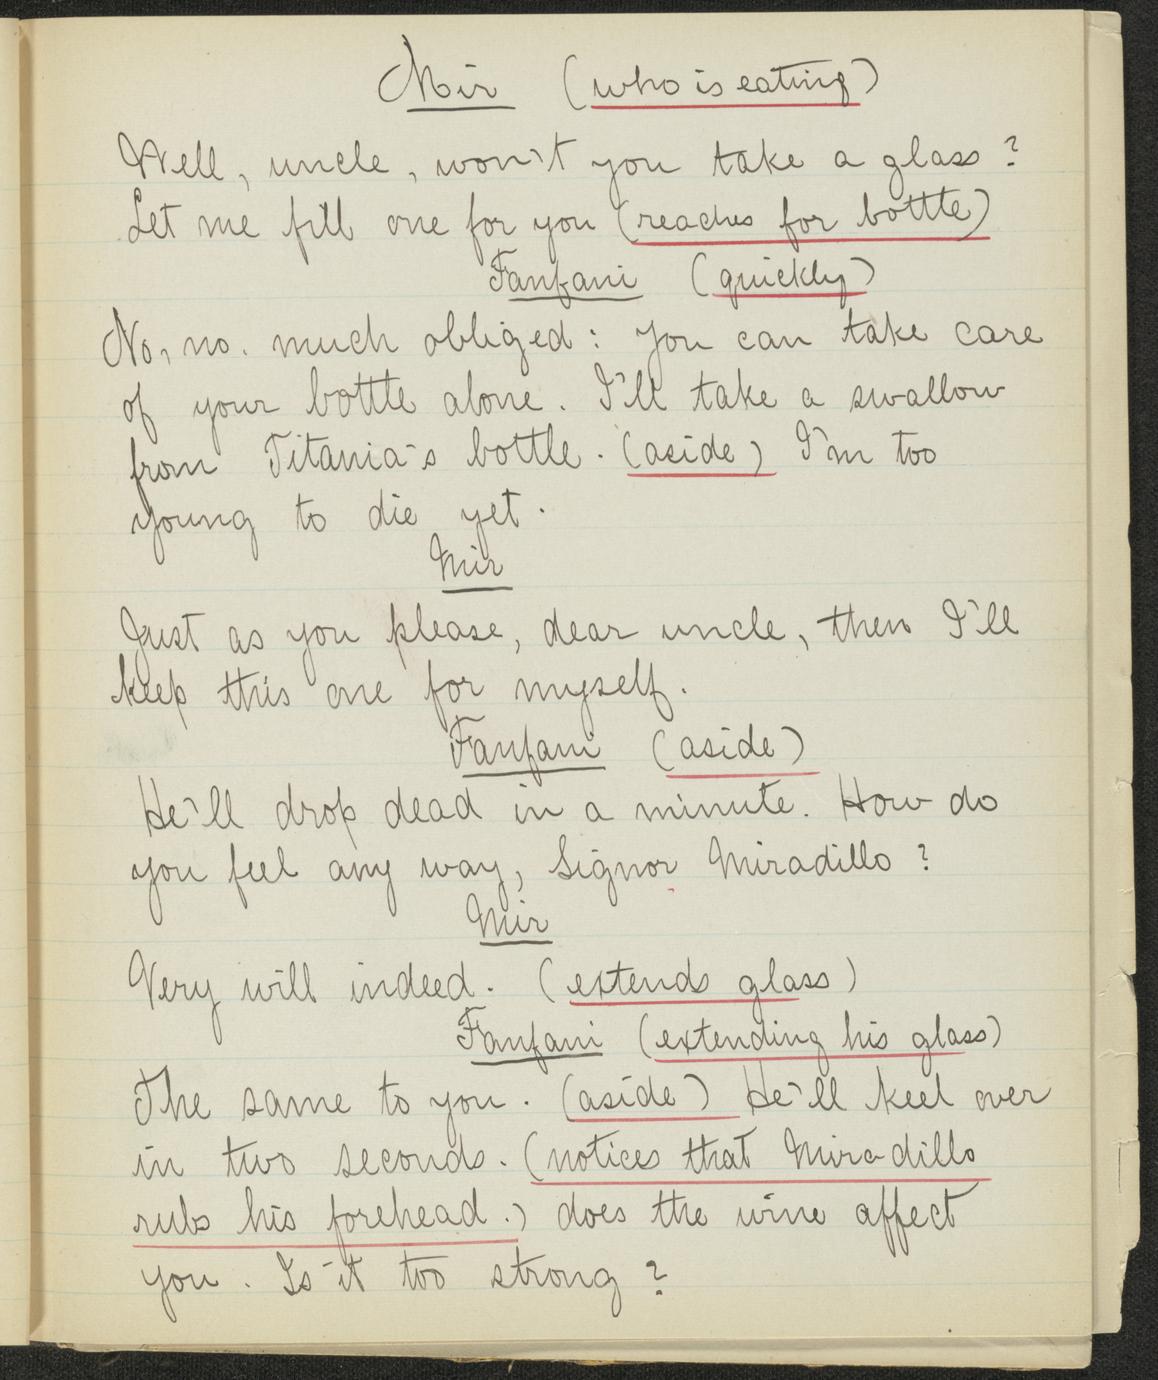 Mir (who is eating)
Well, uncle, won't you take a glass?
Let me fill one for you (reaches for bottle)
Fanfani (quickly)
No, no. much obliged: you can take care
of your bottle alone. I'll take a swallow
from Titania's bottle. (aside) I'm too
young to die yet.
Mir
Just as you please, dear uncle, then I'll
keep this one for myself.
Fanfani (aside)
He'll drop dead in a minute. How do
you feel any way, Signor Miradillo?
Mir
Very will indeed. (extends glass)
Fanfani (extending his glass)
The same to you. (aside) He'll keel over
in two seconds. (notices that Miradillo
rubs his forehead.) does the wine affect
you. Is it too strong?